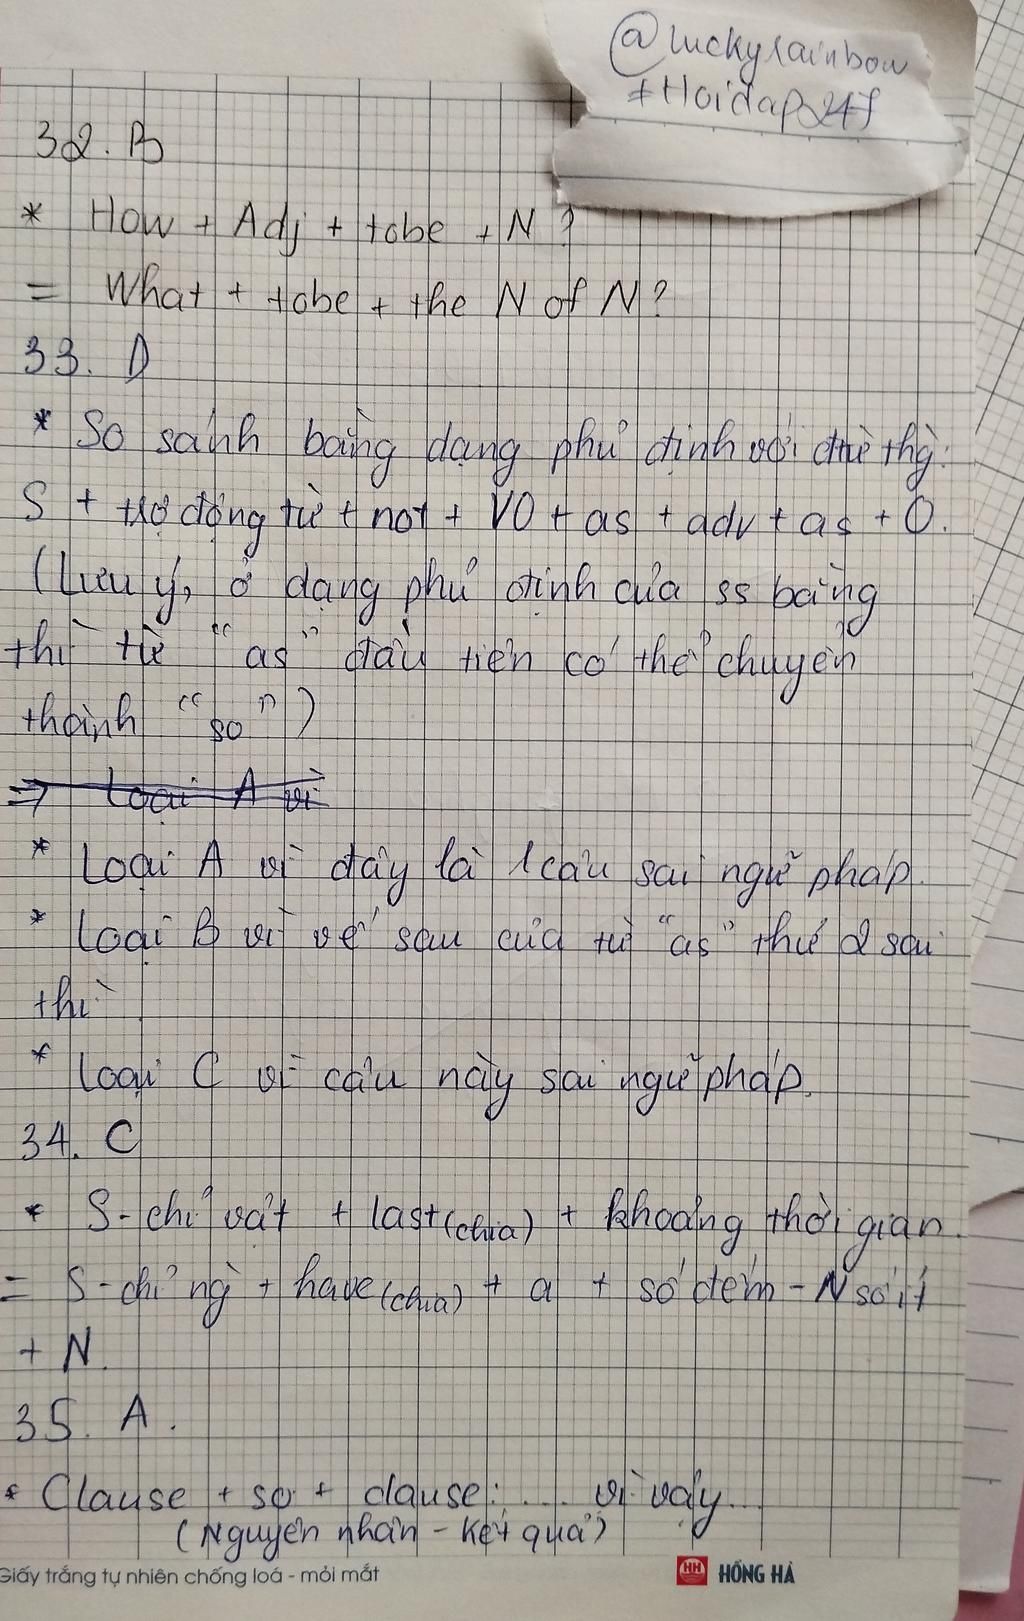 @luckyrainbow
#Hoidap247
32. B
* How + Adj + tobe + N?
= What + tobe + the N of N?
33. D
* So sánh bằng dạng phủ định với đtừ thg:
S + trợ động từ + not + V0 + as + adv + as + O.
(Lưu ý, ở dạng phủ định của ss bằng
thì từ "as" đầu tiên có thể chuyển
thành "so")
⇒ Loại A vì
* Loại A vì đây là 1 câu sai ngữ pháp.
* Loại B vì vế sau của từ "as" thứ 2 sai
thì.
* Loại C vì câu này sai ngữ pháp.
34. C
* S-chỉ vật + last(chia) + khoảng thời gian.
= S-chỉ ng` + have(chia) + a + số đếm - N số ít
+ N.
35. A.
* Clause + so + clause: .... vì vậy....
(Nguyên nhân - Kết quả)
Giấy trắng tự nhiên chống loá - mỏi mắt
HH HỒNG HÀ